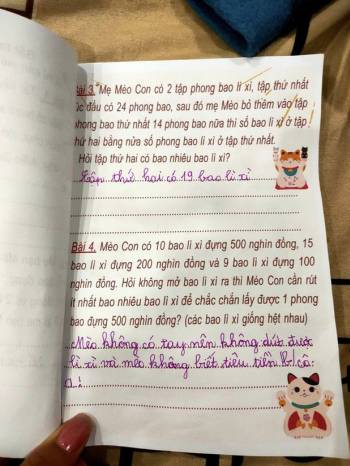 Bài 3. Mẹ Mèo Con có 2 tập phong bao lì xì, tập thứ nhất
lúc đầu có 24 phong bao, sau đó mẹ Mèo bỏ thêm vào tập
phong bao thứ nhất 14 phong bao nữa thì số bao lì xì ở tập
thứ hai bằng nửa số phong bao lì xì ở tập thứ nhất.
Hỏi tập thứ hai có bao nhiêu bao lì xì?
Tập thứ hai có 19 bao lì xì
Bài 4. Mèo Con có 10 bao lì xì đựng 500 nghìn đồng, 15
bao lì xì đựng 200 nghìn đồng và 9 bao lì xì đựng 100
nghìn đồng. Hỏi không mở bao lì xì ra thì Mèo Con cần rút
ít nhất bao nhiêu bao lì xì để chắc chắn lấy được 1 phong
bao đựng 500 nghìn đồng? (các bao lì xì giống hệt nhau)
Mèo không có tay nên không rút được
lì xì và mèo không biết tiêu tiền cô
ạ!